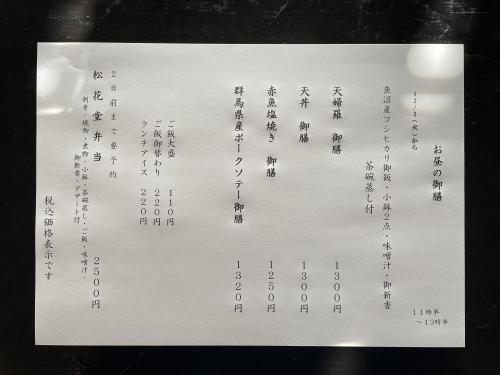 お昼の御膳
12/2(火)から
11時半
〜13時半
魚沼産コシヒカリ御飯・小鉢2点・味噌汁・御新香
茶碗蒸し付
天婦羅 御膳 1300円
天丼 御膳 1300円
赤魚塩焼き 御膳 1250円
群馬県産ポークソテー御膳 1320円
ご飯大盛 110円
ご飯御替わり 220円
ランチアイス 220円
2日前まで要予約
松花堂弁当 2500円
刺身・焼物・煮物・小鉢・茶碗蒸し・ご飯・味噌汁・
御新香・デザート付
税込価格表示です